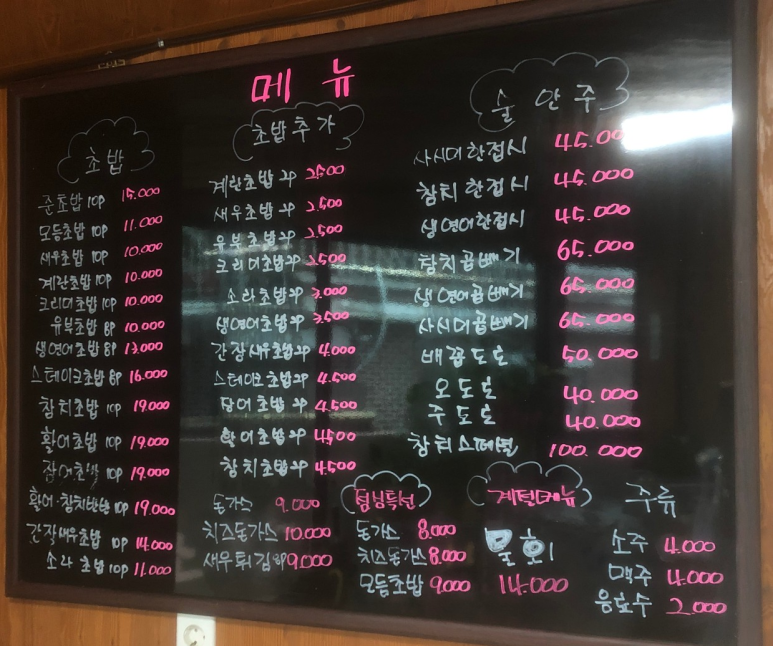 메뉴
초밥
준초밥 10P 15.000
모듬초밥 10P 11.000
새우초밥 10P 10.000
계란초밥 10P 10.000
크리미초밥 10P 10.000
유부초밥 8P 10.000
생연어초밥 8P 13.000
스테이크초밥 8P 16.000
참치초밥 10P 19.000
활어초밥 10P 19.000
장어초밥 10P 19.000
활어·참치반반 10P 19.000
간장새우초밥 10P 14.000
소라초밥 10P 11.000
초밥추가
계란초밥 2P 2.500
새우초밥 2P 2.500
유부초밥 2P 2.500
크리미초밥 2P 2.500
소라초밥 2P 3.000
생연어초밥 2P 3.500
간장새우초밥 2P 4.000
스테이크초밥 2P 4.500
장어초밥 2P 4.500
활어초밥 2P 4.500
참치초밥 2P 4.500
돈가스 9.000
치즈돈가스 10.000
새우튀김 9.000
술안주
사시미한접시 45.000
참치한접시 45.000
생연어한접시 45.000
참치곱빼기 65.000
생연어곱빼기 65.000
사시미곱빼기 65.000
배꼽도로 50.000
오도로 40.000
주도로 40.000
참치스페셜 100.000
점심특선
돈가스 8.000
치즈돈가스 8.000
모듬초밥 9.000
계절메뉴
물회
14.000
주류
소주 4.000
맥주 4.000
음료수 2.000